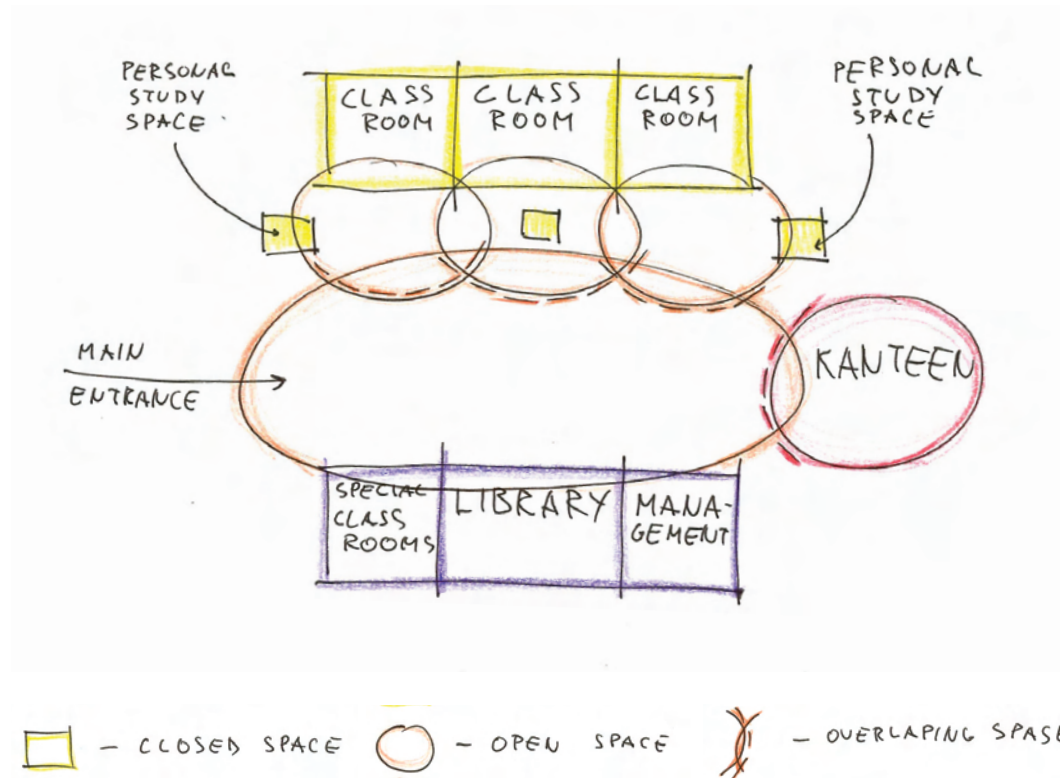 PERSONAL
STUDY
SPACE
CLASS
ROOM
CLASS
ROOM
CLASS
ROOM
PERSONAL
STUDY
SPACE
MAIN
ENTRANCE
KANTEEN
SPECIAL
CLASS
ROOMS
LIBRARY
MANA-
GEMENT
- CLOSED SPACE
- OPEN SPACE
- OVERLAPING SPASE